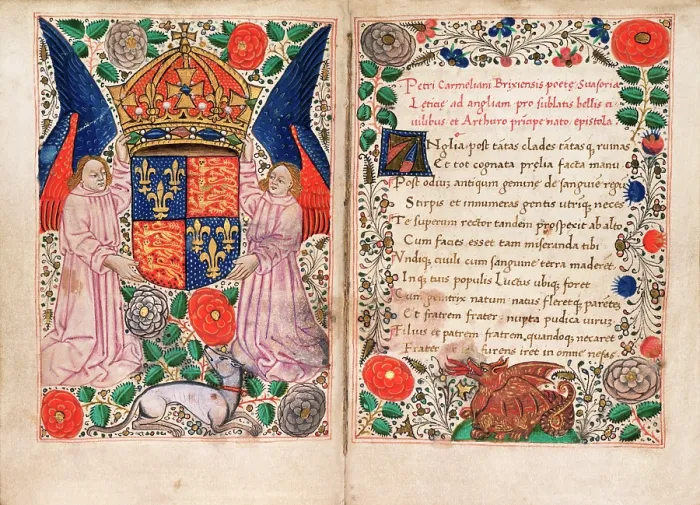 Petri Carmeliani Brixiensis poetę Suasoria
Lęticię ad angliam pro sublatis bellis ci
uilibus et Arthuro prīcipe nato epistola
Anglia post tātas clades tātasq, ruinas
Et tot cognata pręlia facta manu
Post odiū antiquum geminę de sanguie regū
Stirpis et innumeras gentis utriq, neces
Te superum rector tandem prospexit ab alto
Cum facies esset tam miseranda tibi
Vndiq, ciuili cum sanguine terra maderet
Inq, tuis populis Luctus ubiq, foret
Cum genitrix natum natus fleretq, parētes
Et fratrem frater nupta pudica uirum
Filius et patrem fratrem, quandoq, necaret
Frater furens iret in omne nefas